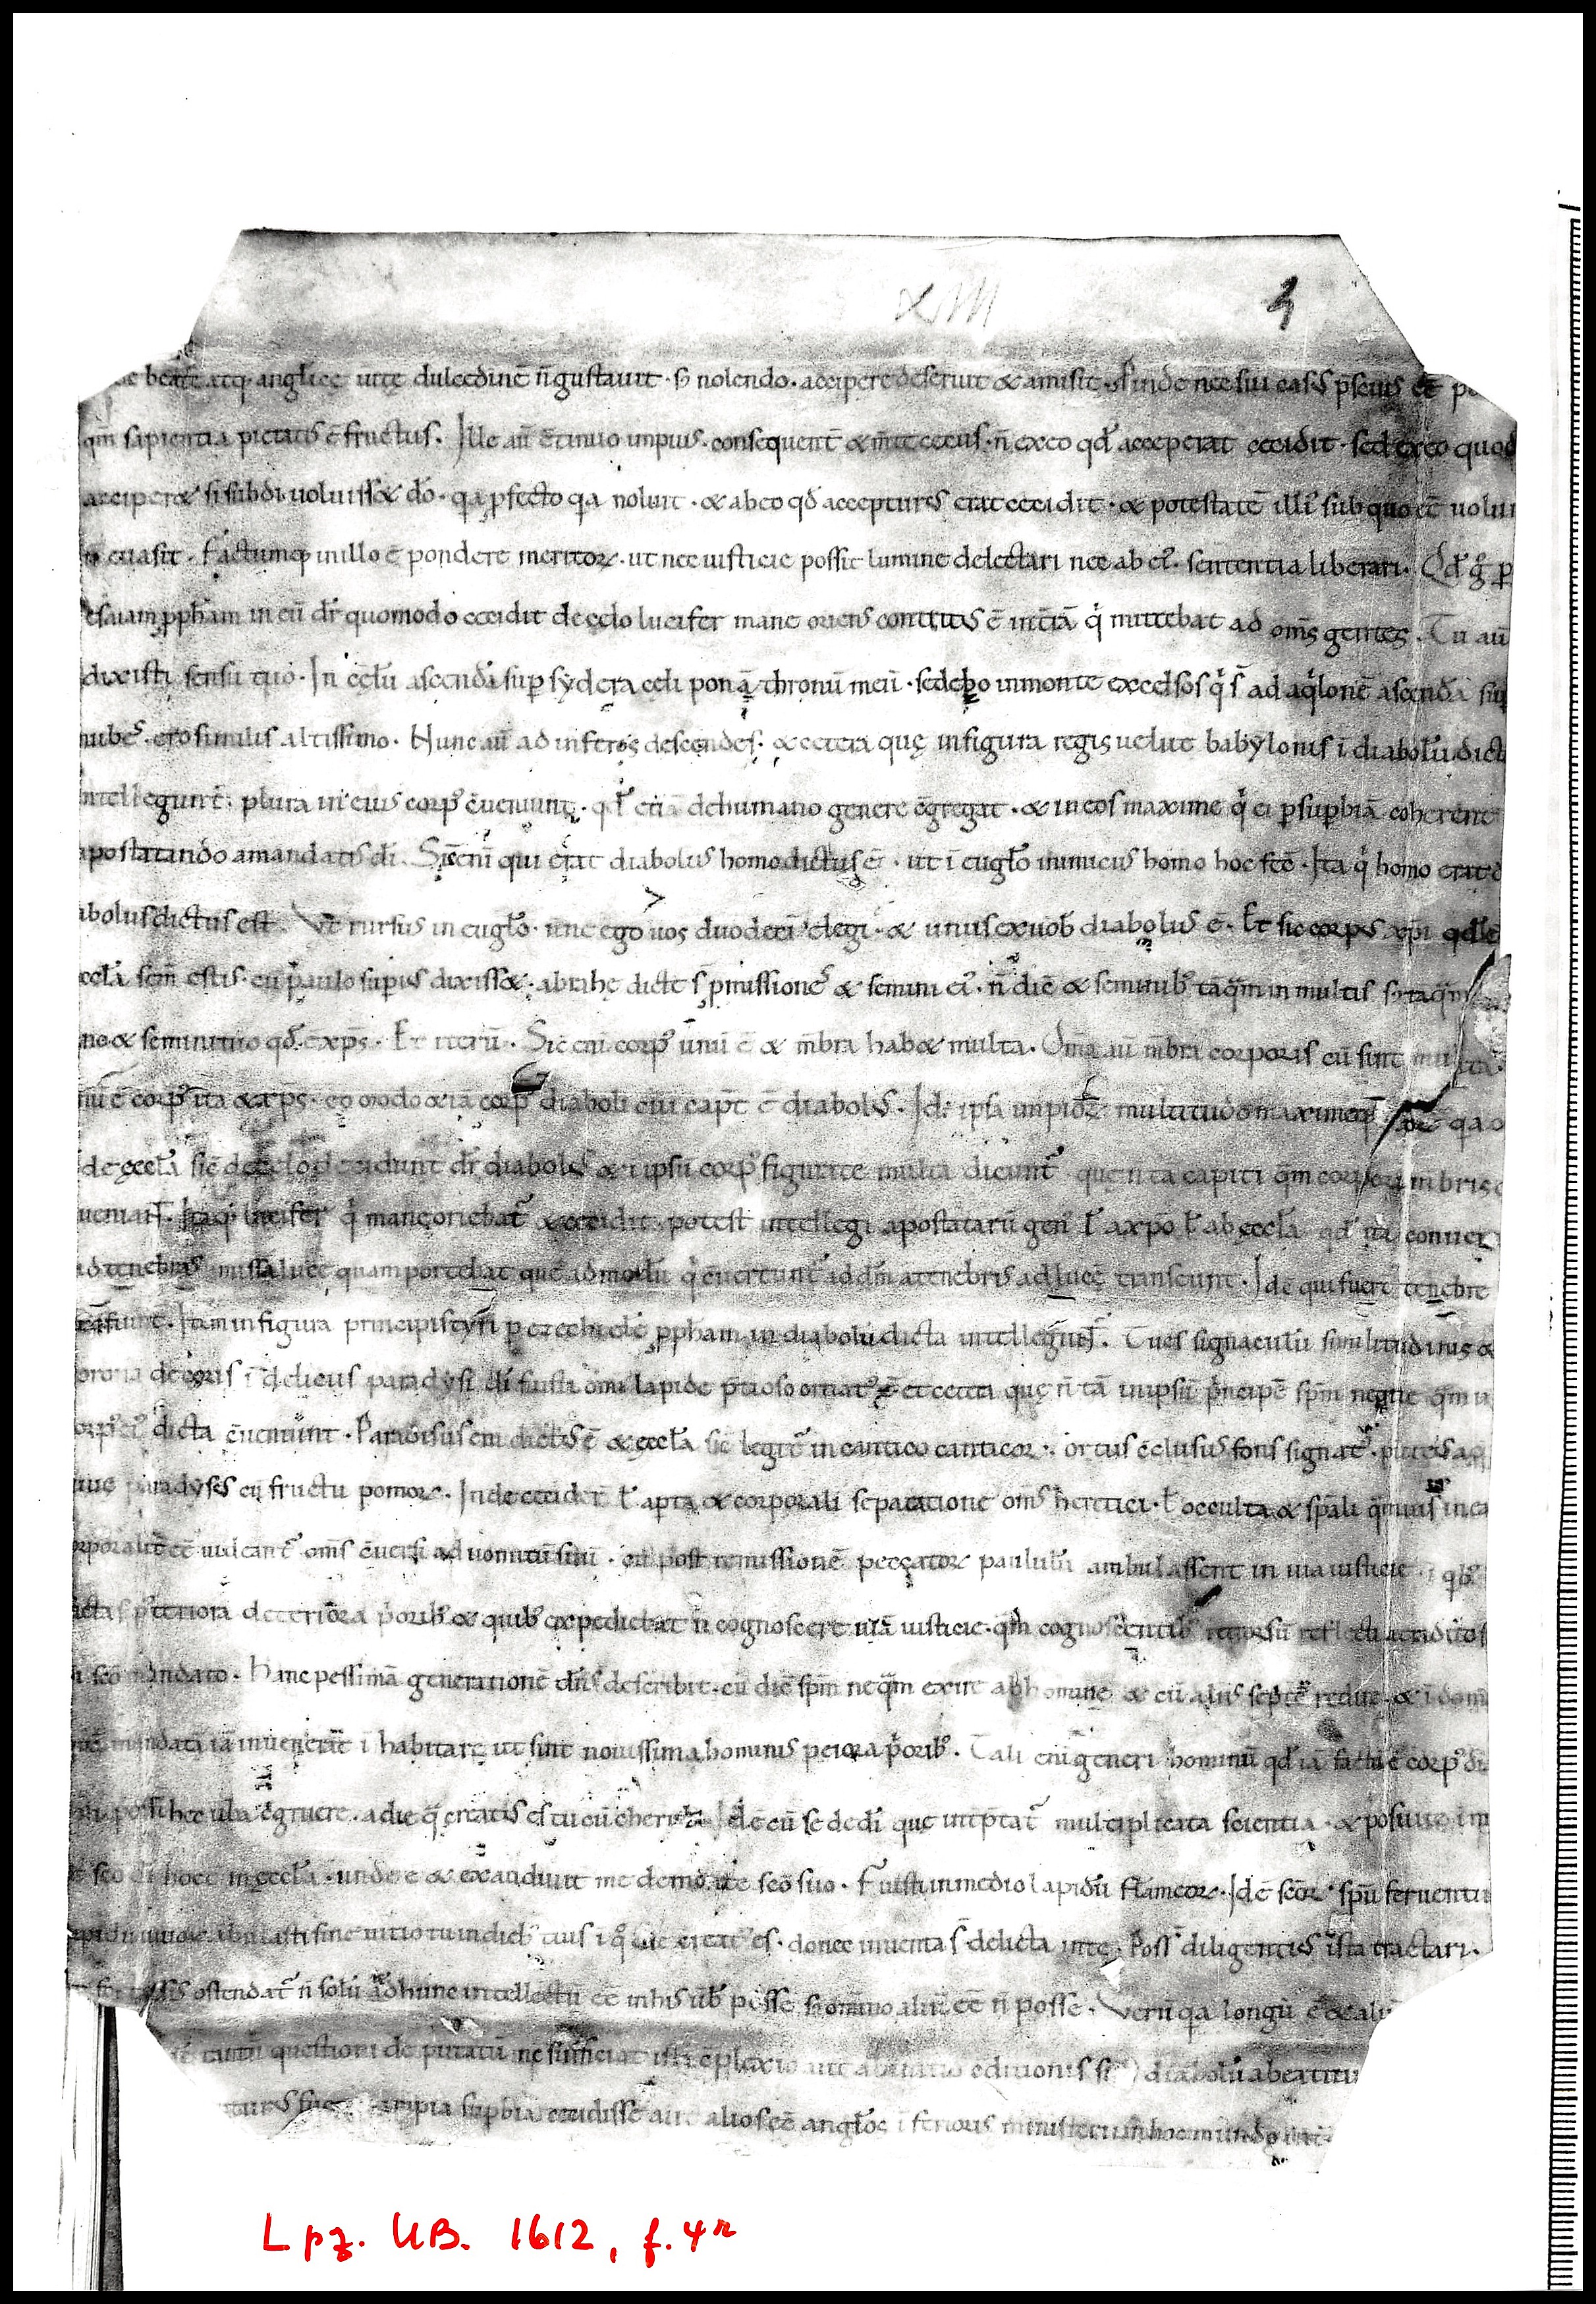 XIII
4
beate atq; anglicę uitę dulcedinē n̄ gustauit · s; nolendo · accipere deseruit & amisit · Proinde nec sui casus p̄scius eē
qm̄ sapientia pietatis ē fructus. Ille aū c̄tinuo impius · consequent̄ & m̄te cecus · n̄ ex eo qd̄ acceperat cecidit · sed ex eo quod
acciper& si subdi uoluiss& dō · qa p̄fecto qa noluit · & ab eo qd̄ accepturus erat cecidit · & potestatē illi᷒ sub quo eē nolui
n̄ euasit · Factumq; in illo ē pondere meritoꝝ · ut nec iusticie possit lumine delectari nec ab ei᷒ · sententia liberari. Qd̄ g̊ ꝑ
esaiam ꝓph̄am in eū dr̄ quomodo cecidit de celo lucifer mane oriens contritus ē in t̄rā q͛ mittebat ad om̄s gentes. Tu aū
dixisti sensu tuo · In celū ascendā suꝑ sydera celi ponā thronū meū · sedebo in monte excelso sꝰ q͛ s̄ ad aq͛lonē ascendā suꝑ
nubes · ero similis altissimo · Nunc aū ad inferos descendes · & cetera quę in figura regis uelut babylonis ī diabolū dicta
intellegunt᷒ plura in eius corp᷒ c̄ueniunt · qd̄ etiā de humano genere c̄gregat · & in eos maxime q͛ ei ꝑ suꝑbiā coherent
apostatando a mandatis dī. Sic enī qui erat diabolus homo dictus ē · ut ī eugl̄o inimicus homo hoc fec̄ · Ita q͛ homo erat d
abolus dictus est. Vt rursus in eugl̄o · nn̄e ego uos duodeci elegi · & unus ex uob̄ diabolus ē · Et sic corpus xp̄i qd̄ ē
eccl̄a sem̄ estis · cū paulo supius dixiss& · abrahę dictę s̄ ꝓmissiones & semini ei᷒ · n̄ dic̄ & seminib᷒ tāq̄m in multis s; tāq̄m
no & semini tuo qd̄ ē xp̄s · Et iterū · Sic eni corp᷒ unū ē & m̄bra hab& multa · Om̄ia aū m̄bra corporis cū sint multa
nū ē corp᷒ ita & xp̄s · eo modo & iā corp᷒ diaboli cui᷒ capt̄ ē diabolus · Id ē ipsa impioꝝ multitudo maximeq; qa
de eccl̄a sic de celo decidunt dr̄ diabolus & ī ipsū corp᷒ figurate multa dicunt᷒ que n̄ tā capiti q̄m corpori m̄brisq;
ueniant. Itaq; lucifer q͛ mane oriebat᷒ & cecidit · potest intellegi apostatarū gen᷒ l̄ a xp̄o l̄ ab eccl̄a qd̄ ita conuer
ad tenebras amissa luce quam portabat que ad modū q͛ c̄uertunt᷒ ad dm̄ a tenebris ad lucē transeunt · Id ē qui fuer̄ tenebre
lux fiunt. Item in figura principis tyri ꝑ ezechielē ꝓpham in diabolū dicta intellegunt᷒. Tu es signaculū similitudinis &
corona decoris ī deliciis paradysi dī fuisti omī lapide p̄tioso ornat᷒ & cetera quę n̄ tā in ipsū p̄ncipē spm̄ neqtie q̄m in
corp᷒ ei᷒ dicta c̄ueniunt · Paradisus eni dictus ē & eccl̄a sic legit᷒ in cantico canticoꝝ · ortus c̄clusus fons signat᷒ · puteus aq
uiue paradysus cū fructu pomoꝝ · Inde cecider̄ l̄ apta & corporali sepatione om̄s heretici · l̄ occulta & sp̄ali q̄muis in ea
orporalit̄ eē uideant᷒ om̄s c̄uersi ad uomitū suū · cū post remissionē peccatoꝝ paululū ambulassent in uia iusticie · ī qb᷒
cta s̄ posteriora deteriora p̄orib᷒ & quib᷒ expediebat n̄ cognoscere uiā iusticie · q̄m cognoscentib᷒ retrorsū reflecti a tradito s
i sc̄o mandato · Hanc pessimā generationē dn̄s describit · cū dic̄ spm̄ neq̄m exire ab homine & cū aliis septē redire · & ī domū
mundatā iā inuenerit ī habitare ut sint nouissima hominis peiora p̄orib᷒ · Tali eni generi hominū qd̄ iā factū ē corp᷒ di
boli possunt hec uba c̄gruere · a die q̄ creatus es tu cū cherub · Id ē cū sede dī que int̄ptat᷒ multiplicata scientia · & posui te ī m
sc̄o dī hoc ē in eccl̄a · unde ē & exaudiuit me de monte sc̄o suo · Fuisti in medio lapidū flāmeoꝝ · Id ē sc̄oꝝ spū feruentiū
lapidū uiuoꝝ · ambulasti sine uitio tu in dieb᷒ tuis ī q͛ die creat᷒ es · donec inuenta s̄ delicta in te · Poss̄ diligenti᷒ ista tractari ·
fortassis ostendat᷒ n̄ solū ad hunc intellectū eē in his ub̄ posse s; om̄ino aliū eē n̄ posse · Verū qa longū ē & aliū
questioni deputatū ne sufficiat diabolū a beatitu
ꝓpria suꝑbia cecidisse aut alios eē angl̄os ī ferioris ministerii in hoc mundo
Lpz. UB. 1612, f. 4r